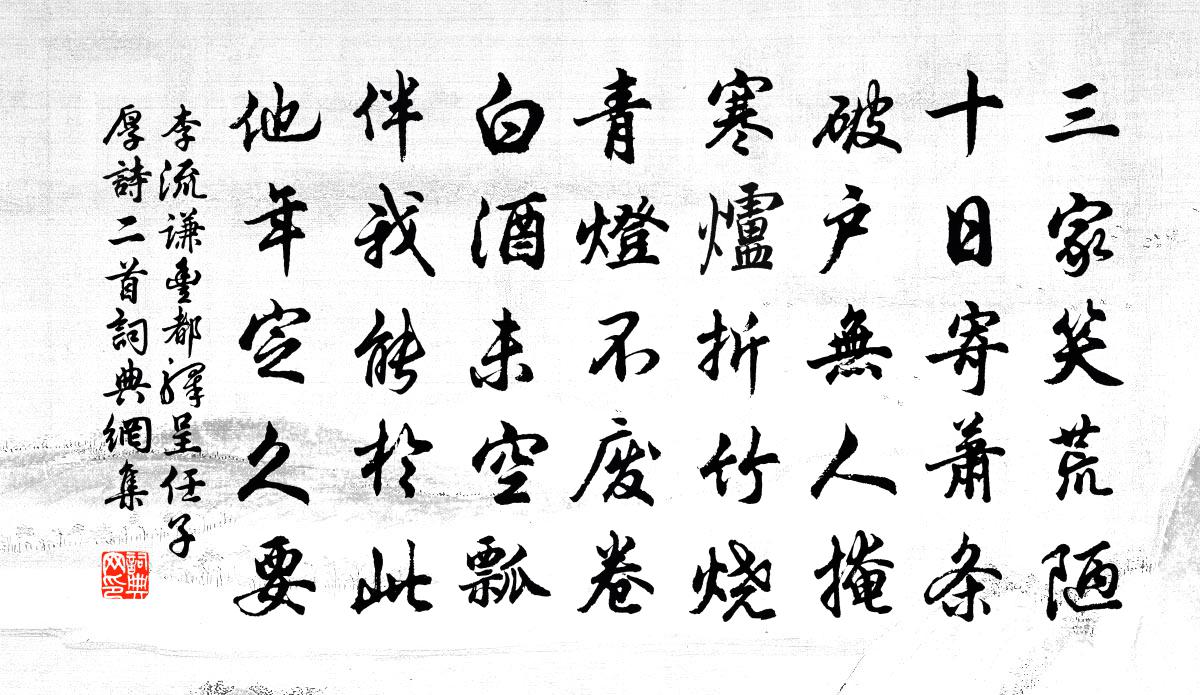 三家笑荒陋
十日寄蕭条
破户無人掩
寒爐折竹烧
青燈不废卷
白酒未空瓢
伴我能於此
他年定久要
李流谦豊都驿呈任子
厚詩二首詞典網集
詞典网印